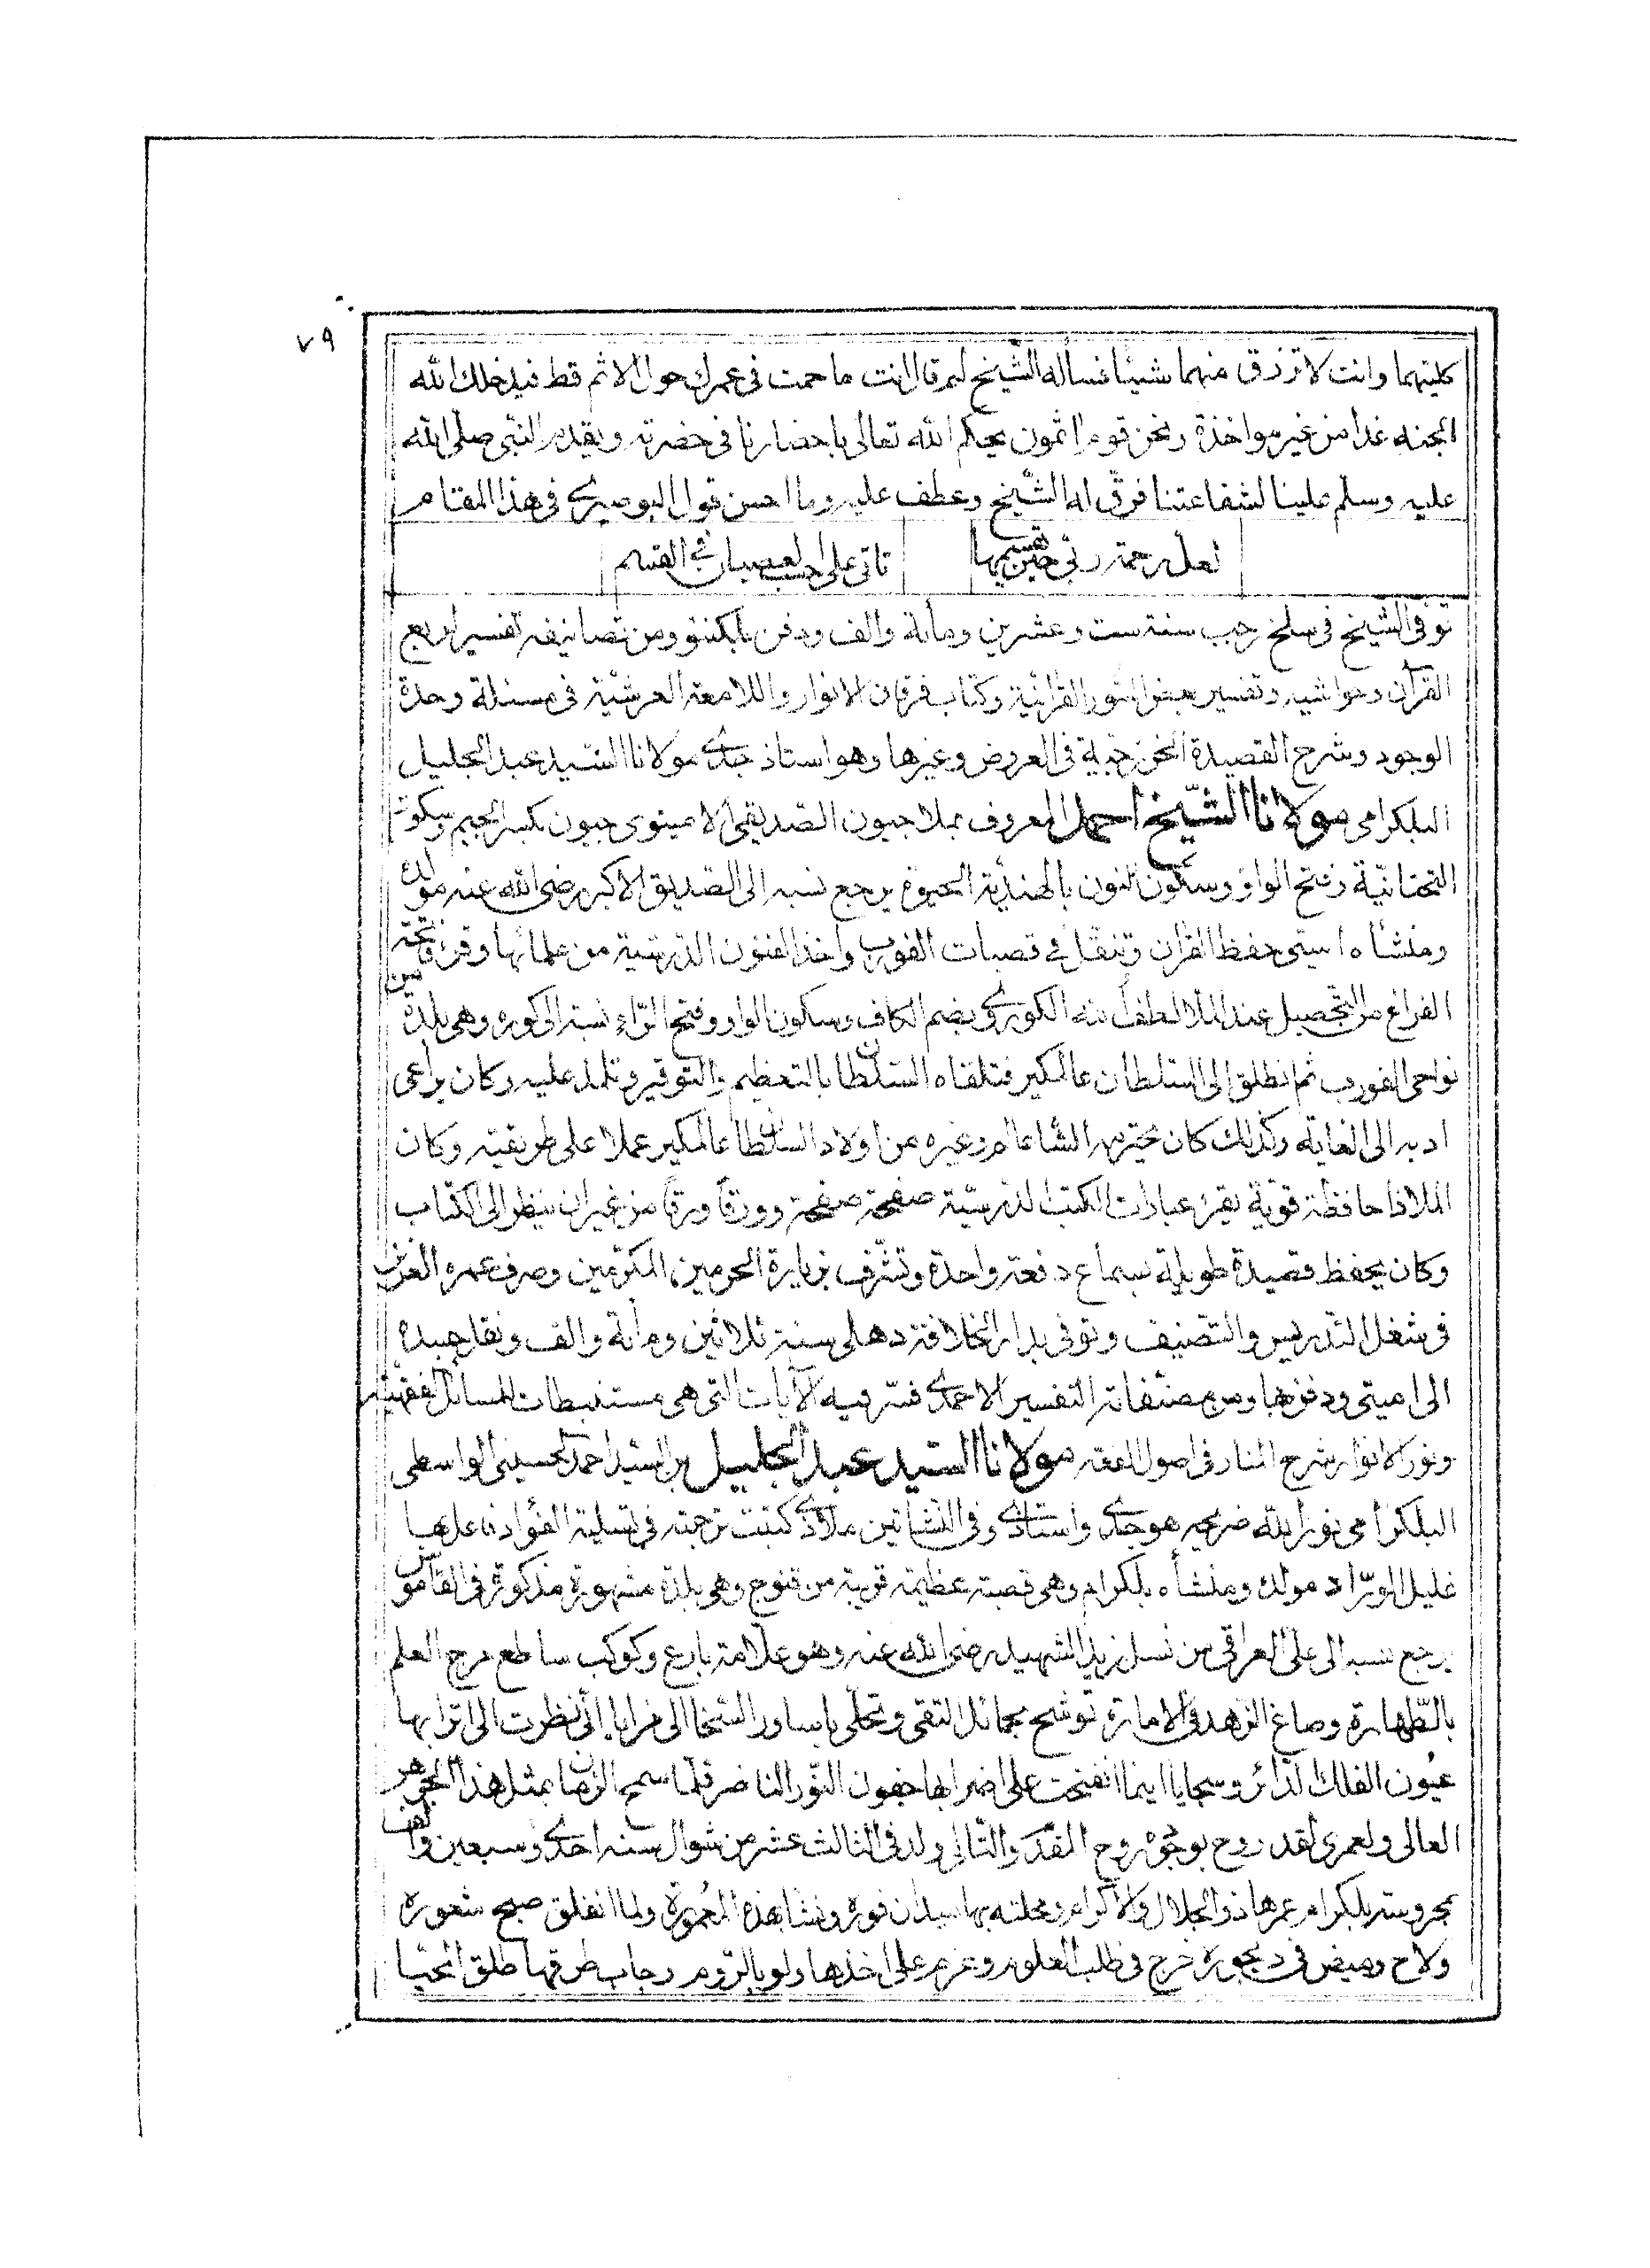 ٧٩
كليتهما وانت لا ترزق منهما شيئا فساله الشيخ لم قال انت ما حمت فى عمرك حول الاثم قط فيدخلك الله
الجنه غدا من غير مواخذة ونحن قوم اثمون يحكم الله تعالى باحضارنا فى حضرته ويقدم النبى صلى الله
عليه وسلم علينا لشفاعتنا فرق له الشيخ وعطف عليه وما احسن قول البوصيرى فى هذا المقام
لعل رحمة ربى حين يقسمها تاتى على حسب العصيان فى القسم
توفى الشيخ فى سلخ رجب سنة ست وعشرين ومأئة والف ودفن بلكنئو ومن تصانيفه تفسير ربع
القرآن وحواشيه وتفسير بعض السور القرآنية وكتاب فرقان الانوار واللامعة العرشية فى مسئلة وحدة
الوجود وشرح القصيدة الخزرجية فى العروض وغيرها وهو استاذ جدى مولانا السيد عبد الجليل
البلكرامى مولانا الشيخ احمد المعروف بملا جيون الصديقى الاميتوى جيون بكسر الجيم وسكون
التحتانية وفتح الواو وسكون النون بالهندية الحيوة يرجع نسبه الى الصديق الاكبر رضى الله عنه مولده
ومنشأه اميتى حفظ القرآن وتنقل فى قصبات الفورب واخذ الفنون الدرسية من علمائها وقرء فاتحة
الفراغ من التحصيل عند الملا لطف الله الكوروى بضم الكاف وسكون الواو وفتح الراء نسبة الى كوره وهى بلدة من
نواحى الفورب ثم انطلق الى السلطان عالمكير فتلقاه السلطان بالتعظيم والتوقير وتلمذ عليه وكان يراعى
ادبه الى الغاية وكذلك كان يحترمه الشاه عالم وغيره من اولاد السلطان عالمكير عملا على طريقته وكان
الملا ذا حافظة قوية يقرء عبارات الكتب الدرسية صفحة صفحة وورقا ورقا من غير ان ينظر الى الكتاب
وكان يحفظ قصيدة طويلة بسماع دفعة واحدة وتشرف بزيارة الحرمين المكرمين وصرف عمره العزيز
فى شغل التدريس والتصنيف وتوفى بدار الخلافة دهلى سنة ثلاثين ومأئة والف ونقل جسده
الى اميتى ودفن بها ومن مصنفاته التفسير الاحمدى فسر فيه الآيات التى هى مستنبطات المسائل الفقهية
ونور الانوار شرح المنار فى اصول الفقه مولانا السيد عبد الجليل بن السيد احمد الحسينى الواسطى
البلكرامى نور الله ضريحه هو جدى واستاذى وفى النشأتين ملاذى كتبت ترجمته فى تسلية الفؤاد
غليل الوراد مولده ومنشأه بلكرام وهى قصبة عظيمة قريبة من قنوج وهى بلدة مشهورة مذكورة فى القاموس
يرجع نسبه الى على العراقى من نسل زيد الشهيد رضى الله عنه وهو علامة بارع وكوكب ساطع مزج العلم
بالطهارة وصاغ الزهد فى الامارة توشح بحمائل التقى وتحلى باساور السخا الى مزايا انى نظرت الى اترابها
عيون الفلك الدائر وسجايا اينما انفتحت على اضرابها جفون النور الناضر قلما سمح الزمان بمثل هذا الجوهر
العالى ولعمرى لقد روح بوجوده روح المقدم والتالى ولد فى الثالث عشر من شوال سنه احدى وسبعين والف
بمحروسة بلكرام عمرها ذو الجلال والاكرام ومحلته بها ميدان فوره ونشا بهذه المعمورة ولما انفلق صبح شعوره
ولاح وميض فى ديجوره خرج فى طلب العلوم وعزم على اخذها ولو بالروم وجاب طرقها طلق المحيا